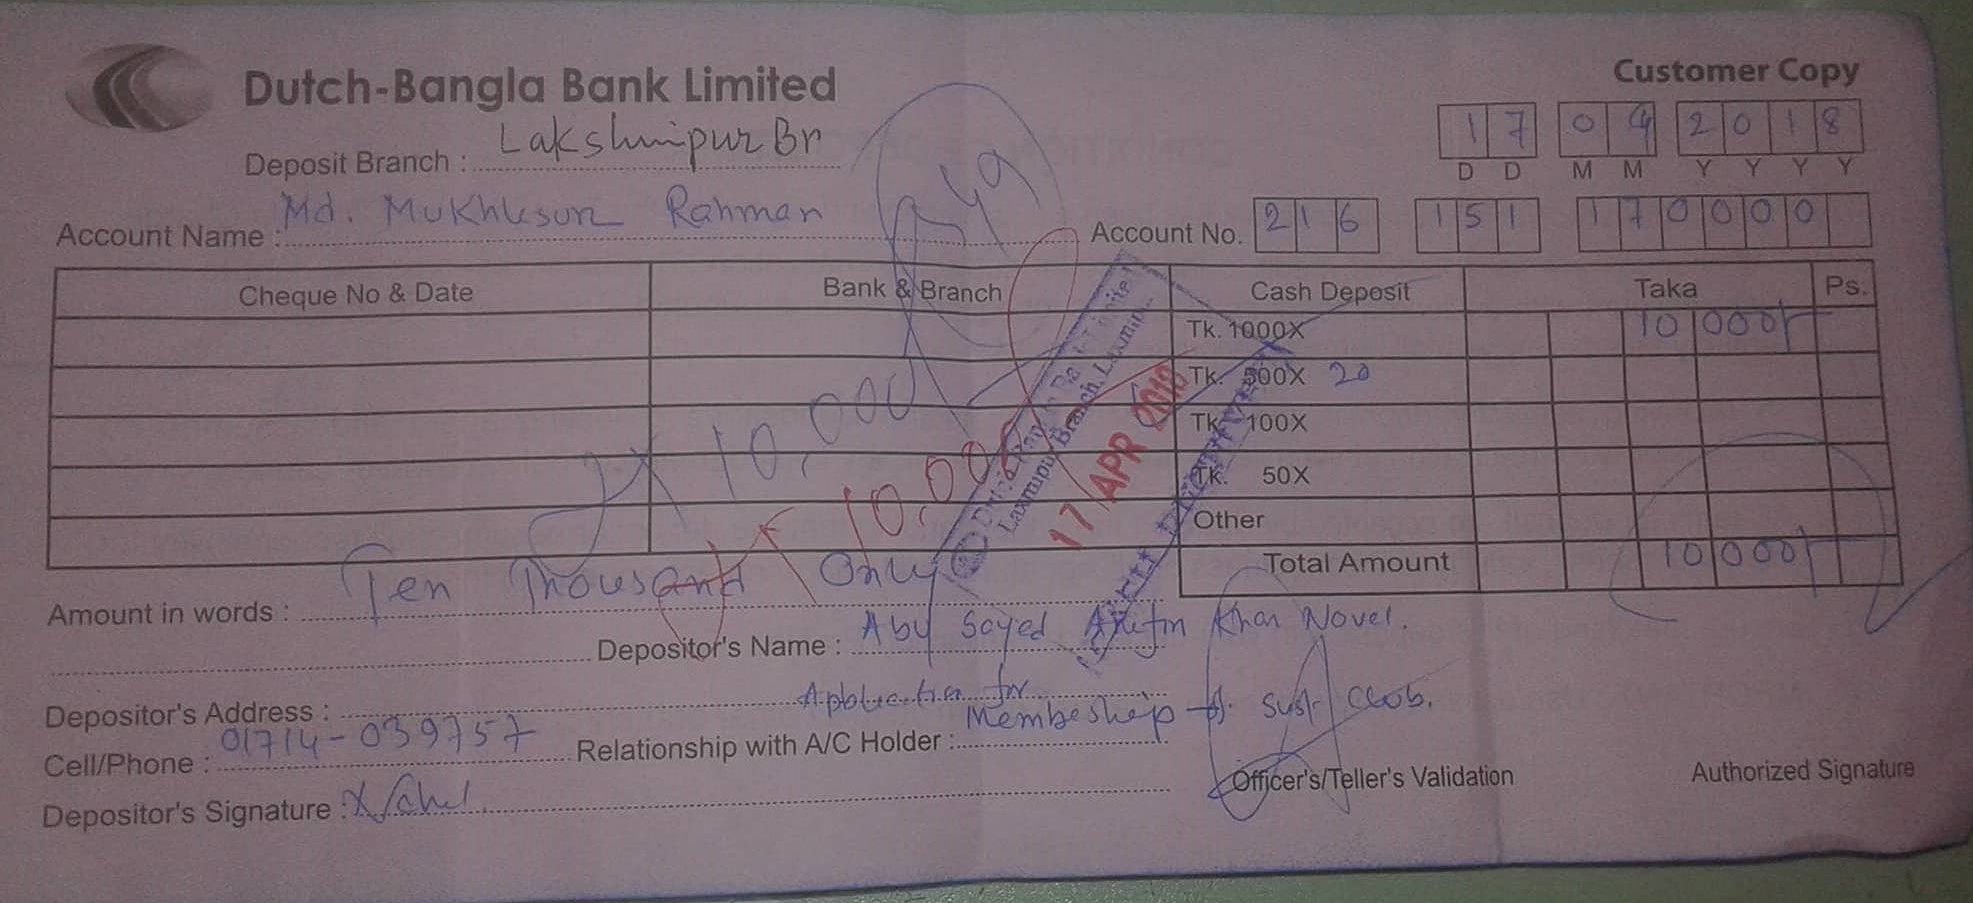 Dutch-Bangla Bank Limited
Customer Copy
Deposit Branch : Lakshmipur Br
17 04 2018
D D M M Y Y Y Y
Account Name : Md. Mukhlesur Rahman
Account No. 216 151 170000
Cheque No & Date Bank & Branch Cash Deposit Taka Ps.
Tk. 1000X 10 000/-
Tk. 500X 20
Tk. 100X
Tk. 50X
Other
Total Amount 10 000/-
10,000
10,000
Laxmipur Branch, Laxmipur
17 APR 2018
Amount in words : Ten Thousand Only
Depositor's Name : Abu Sayed Arefin Khan Novel.
Depositor's Address :
Application for
Membeship of Sust Club.
Cell/Phone : 01714-039757
Relationship with A/C Holder :
Depositor's Signature :
Officer's/Teller's Validation
Authorized Signature